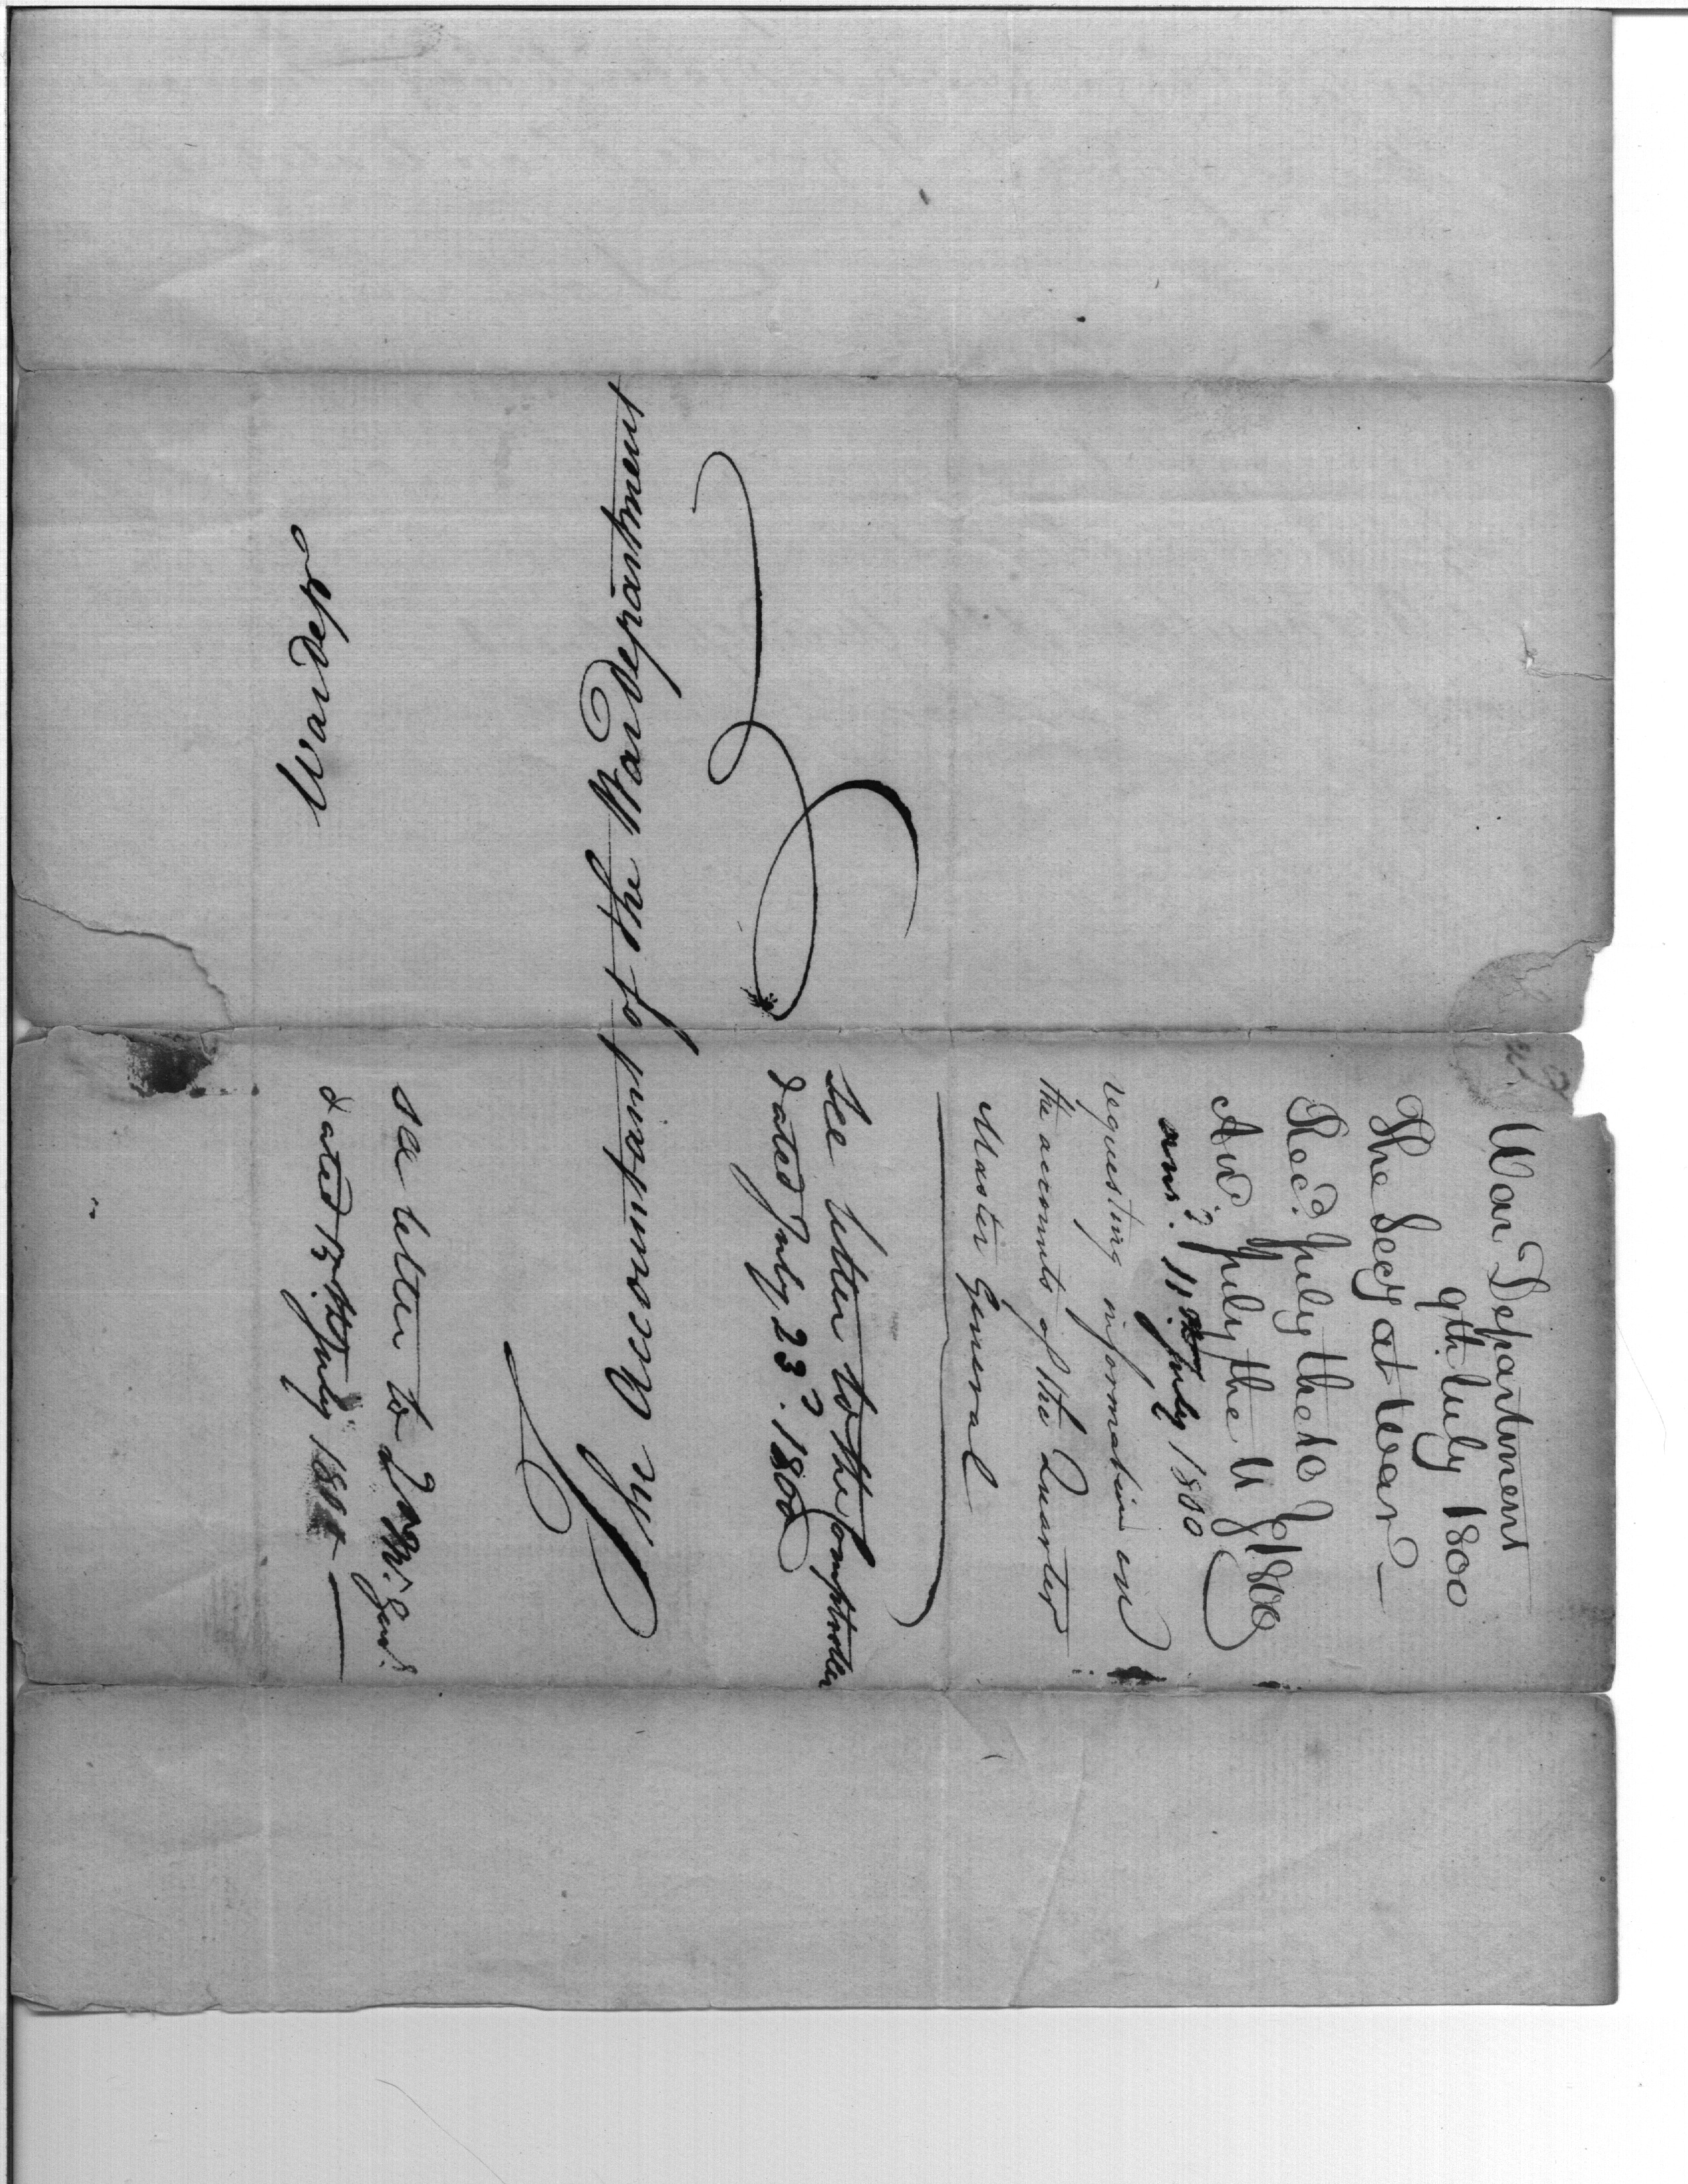 War Department
9th July 1800
The Secy at War
Recd. July the 10
Aud. July the 11 1800
ansd. 11th. July 1800
requesting information on
the accounts of the Quarter
Master General
see letter to the Comptroller
dated July 23d. 1800
see letter to Q Mr. Genl.
dated 15th July 1800
War Dept
The Accountant of the War Department